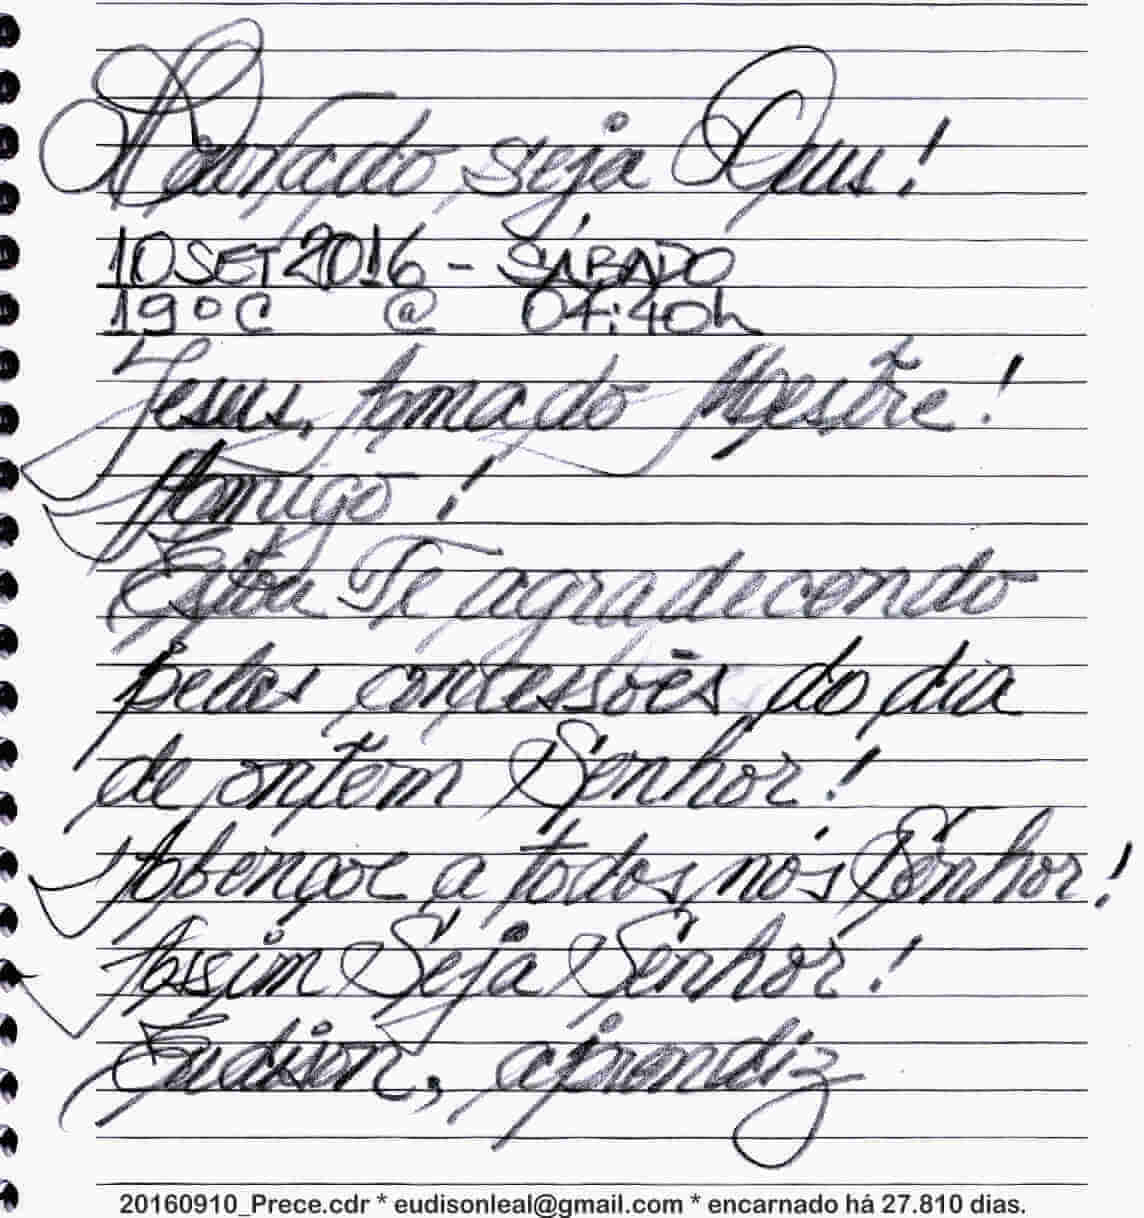 Louvado seja Deus!
10 SET 2016 - SÁBADO
19°C @ 04:40h
Jesus, Amado Mestre!
Amigo!
Estou Te agradecendo
pelas concessões do dia
de ontem Senhor!
Abençoe a todos nós Senhor!
Assim Seja Senhor!
Eudison, aprendiz
20160910_Prece.cdr * eudisonleal@gmail.com * encarnado há 27.810 dias.